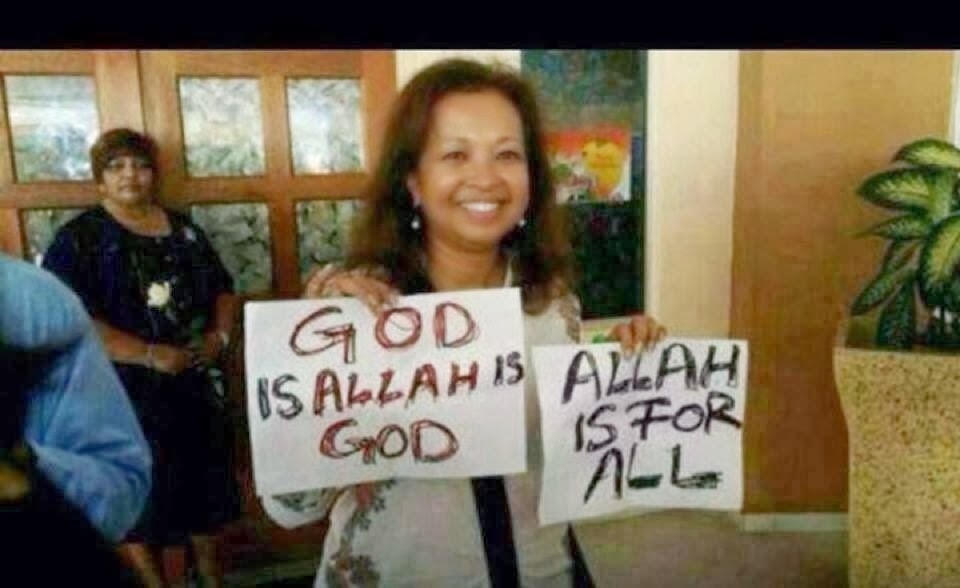 GOD
IS ALLAH IS
GOD
ALLAH
IS FOR
ALL